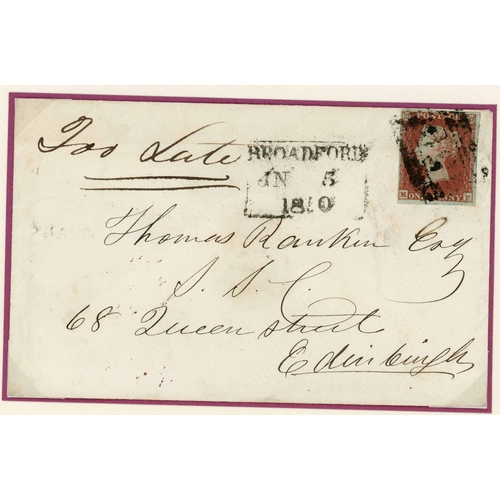 Too Late
BROADFORD
JN 5
POSTAGE
ONE PENNY
Thomas Ranken Esq
S. S. C.
68 Queen street
Edinburgh